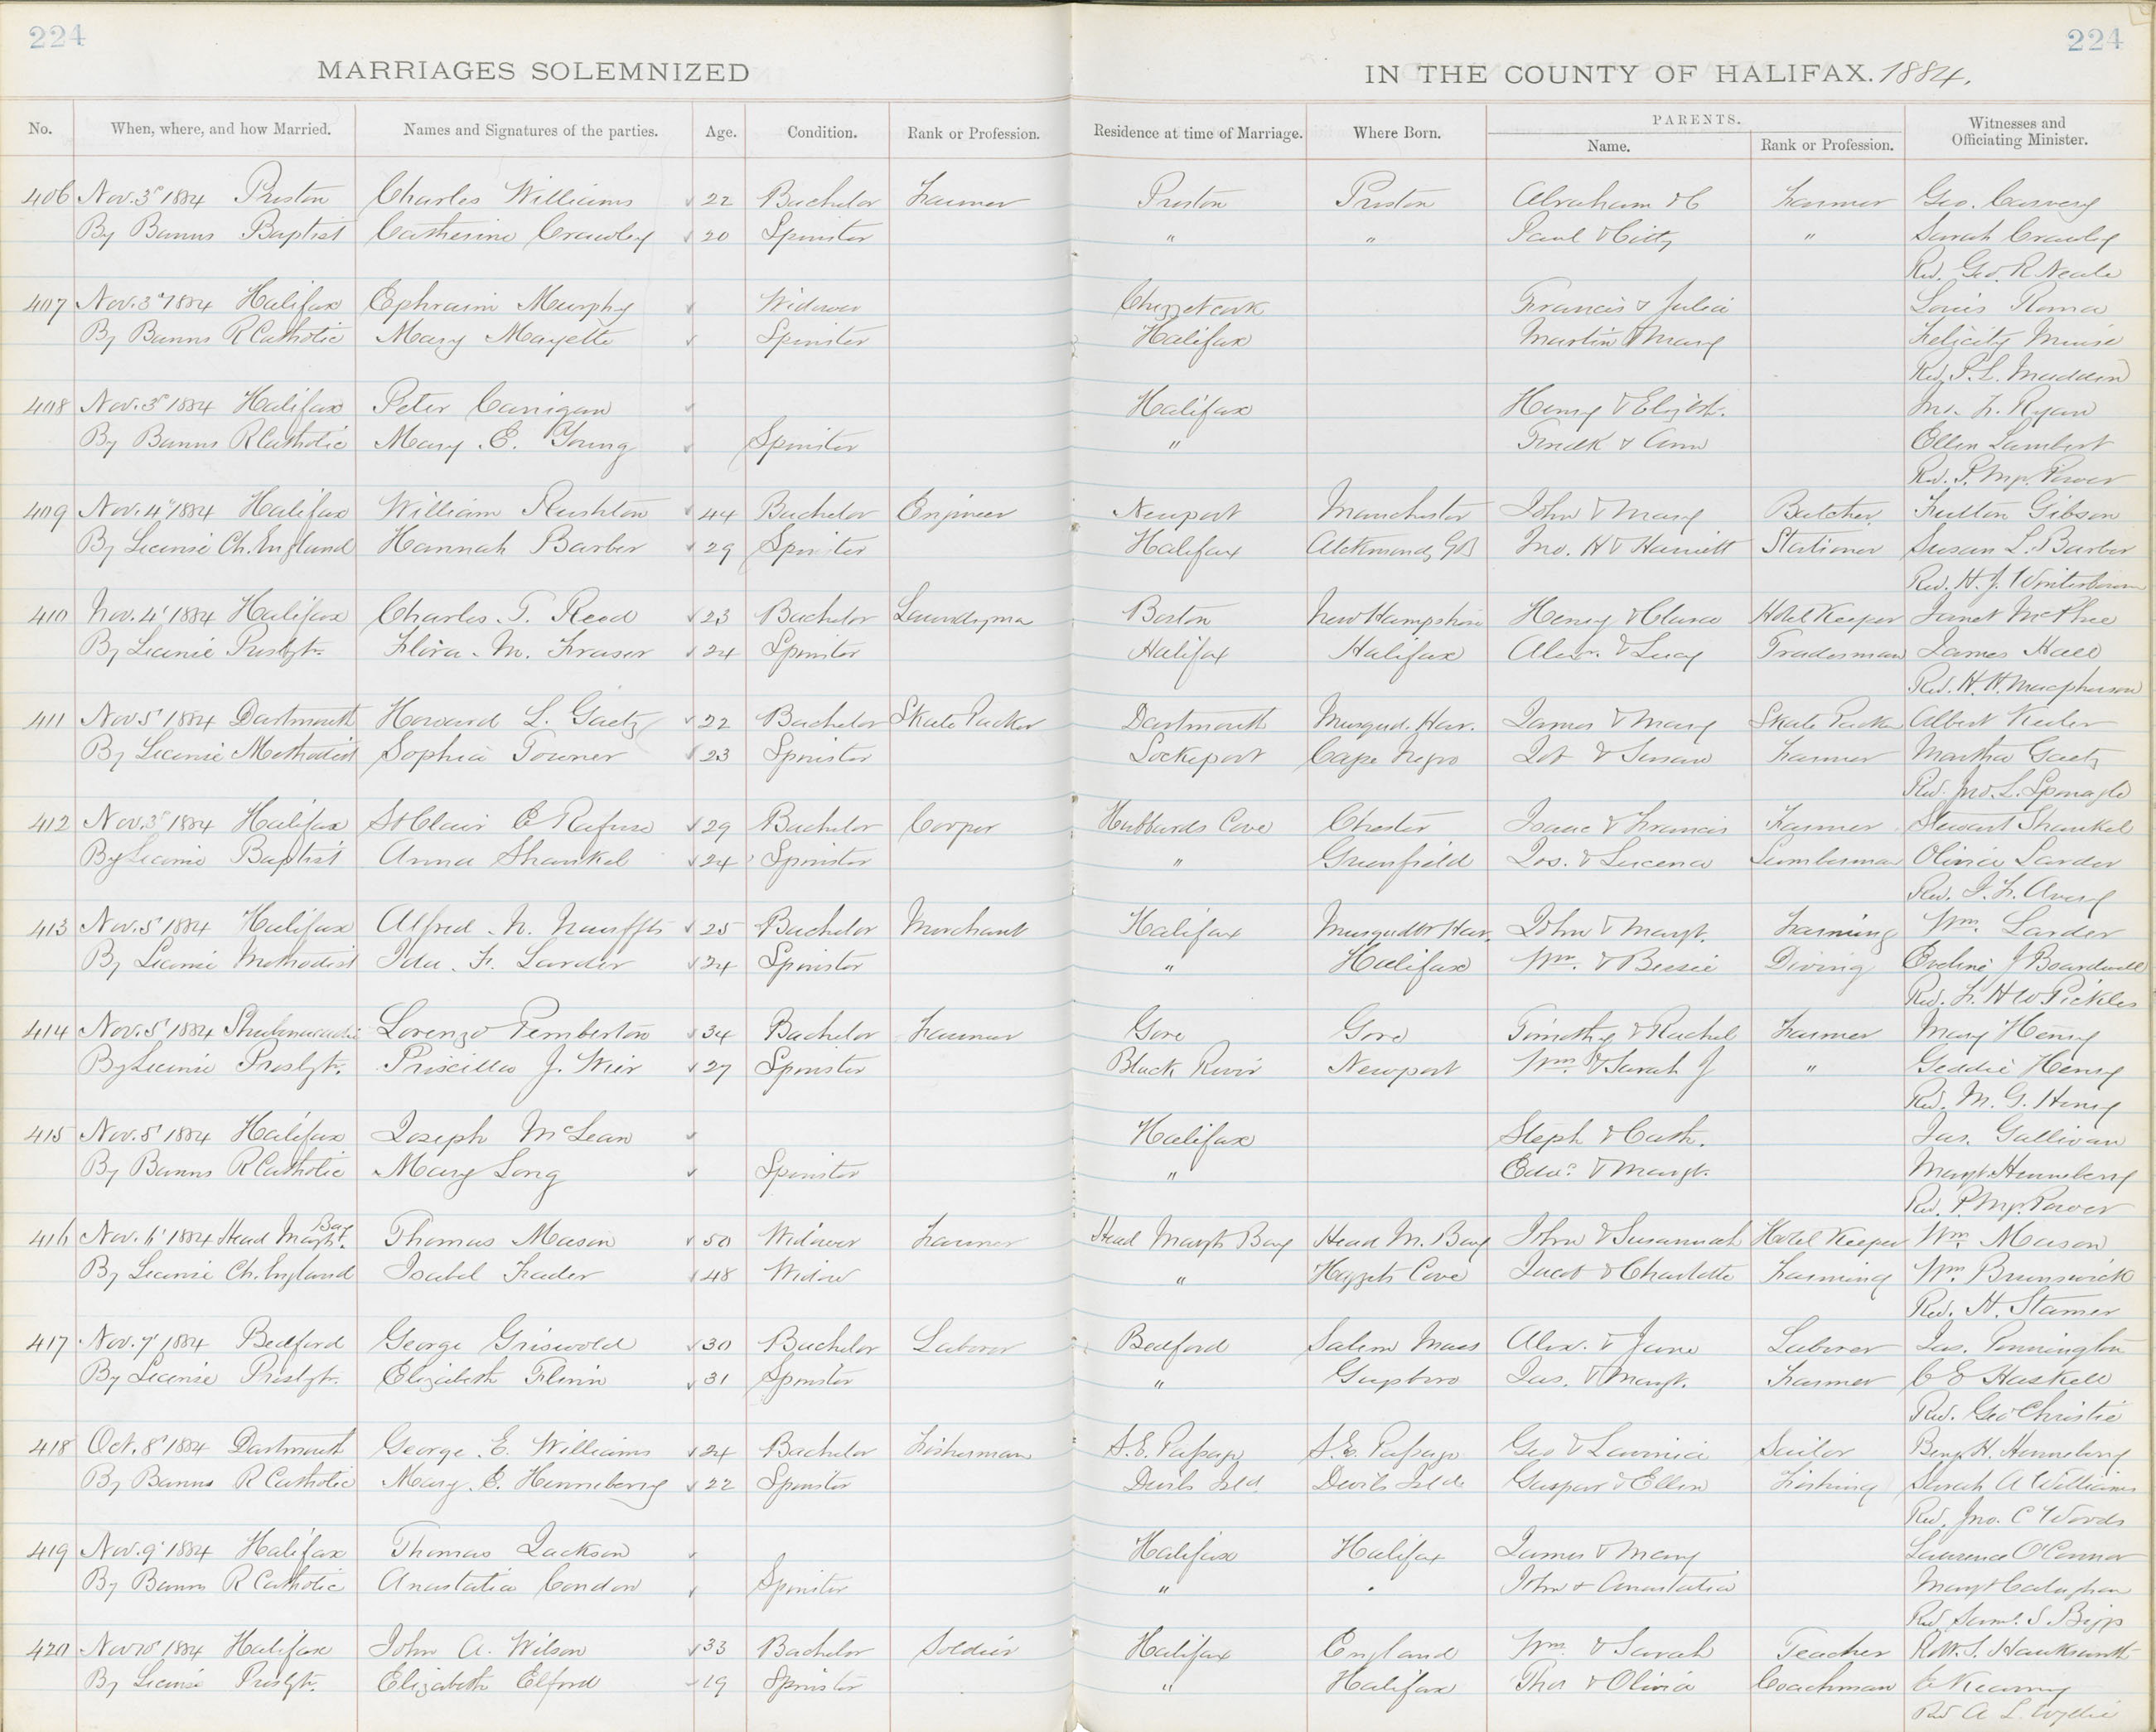 224 224
MARRIAGES SOLEMNIZED IN THE COUNTY OF HALIFAX. 1884.
No. When, where, and how Married. Names and Signatures of the parties. Age. Condition. Rank or Profession. Residence at time of Marriage. Where Born. PARENTS. Witnesses and Officiating Minister.
Name. Rank or Profession.
406 Nov. 3" 1884 Preston Charles Williams 22 Bachelor Farmer Preston Preston Abraham & C Farmer Geo. Carvery
By Banns Baptist Catherine Crawley 20 Spinster " " Paul & Citty " Sarah Crawley
Rev. Geo. R Neale
407 Nov. 3" 1884 Halifax Ephraim Murphy Widower Chezzetcook Francis & Julia Louis Roma
By Banns R Catholic Mary Mayette Spinster Halifax Martin & Mary Felicity Muise
Rev. P. L. Madden
408 Nov. 3" 1884 Halifax Peter Canigan Halifax Henry & Elizbth. Jno. F. Ryan
By Banns R Catholic Mary E. Young Spinster " Fredk & Ann Ellen Lambert
Rev. P. Power
409 Nov. 4" 1884 Halifax William Rushton 44 Bachelor Engineer Newport Manchester John & Mary Butcher Fulton Gibson
By License Ch. England Hannah Barber 29 Spinster Halifax Jno. H & Harriett Stationer Susan L. Barber
Rev. H. J. Winterbourn
410 Nov. 4' 1884 Halifax Charles T. Reed 23 Bachelor Laundryma Boston New Hampshire Henry & Clara Hotel Keeper Janet McPhee
By License Presbytr. Flora M. Fraser 24 Spinster Halifax Halifax Alexr. & Lucy Tradesman James Hall
Rev. H. H. Macpherson
411 Nov 5' 1884 Dartmouth Howard L. Gaetz 22 Bachelor Skate Packer Dartmouth Musqud. Har. James & Mary Skate Packer Albert Keeler
By License Methodist Sophia Towner 23 Spinster Lockeport Cape Negro Lot & Susan Farmer Martha Gaetz
Rev. Jno. L. Sponagle
412 Nov. 3" 1884 Halifax St Clair E Rafuse 29 Bachelor Cooper Hubbards Cove Chester Isaac & Francis Farmer Stewart Shankel
By License Baptist Anna Shankel 24 Spinster " Greenfield Jos. & Lucena Lumberman Olivia Larder
Rev. J. F. Avery
413 Nov. 5' 1884 Halifax Alfred N. Nauffts 25 Bachelor Merchant Halifax Musqudbt Har. John & Margt. Farming Wm. Larder
By License Methodist Ida. F. Larder 24 Spinster " Halifax Wm. & Bessie Diving Eveline J Boardwell
Rev. F. H W Pickles
414 Nov. 5' 1884 Shubenacadie Lorenzo Pemberton 34 Bachelor Farmer Gore Gore Timothy & Rachel Farmer Mary Henry
By License Presbytr. Priscilla J. Wier 27 Spinster Black River Newport Wm. & Sarah J " Geddie Henry
Rev. M. G. Henry
415 Nov. 5' 1884 Halifax Joseph McLean Halifax Steph & Cath. Jas. Gallivan
By Banns R Catholic Mary Long Spinster " Edwd. & Margt. Margt. Henneberry
Rev. P. Power
416 Nov. 6' 1884 Head Margt. Bay Thomas Mason 50 Widower Farmer Head Margts Bay Head M. Bay John & Susannah Hotel Keeper Wm. Mason
By License Ch. England Isabel Frader 48 Widow " Haggets Cove Jacob & Charlotte Farming Wm. Brunswick
Rev. H. Stamer
417 Nov. 7' 1884 Bedford George Griswold 30 Bachelor Laborer Bedford Salem Mass Alex. & Jane Laborer Jas. Pennington
By License Presbytr. Elizabeth Flinn 31 Spinster " Guysboro Jas. & Margt. Farmer C E Haskell
Rev. Geo Christie
418 Oct. 8' 1884 Dartmouth George E. Williams 24 Bachelor Fisherman S. E. Passage S. E. Passage Geo & Lavinia Sailor Benj H. Henneberry
By Banns R Catholic Mary E. Henneberry 22 Spinster Devils Isld. Devils Isld. Gaspar & Ellen Fishing Sarah A Williams
Rev. Jno. C Woods
419 Nov. 9' 1884 Halifax Thomas Jackson Halifax Halifax James & Mary Laurence O'Connor
By Banns R Catholic Anastatia Condon Spinster " " John & Anastatia Margt Calaghan
Rev Saml. S. Biggs
420 Nov 10' 1884 Halifax John A. Wilson 33 Bachelor Soldier Halifax England Wm. & Sarah Teacher Robt. S. Hawksworth
By License Presbytr. Elizabeth Elford 19 Spinster " Halifax Thos & Olivia Coachman C Kearney
Rev A L. Wyllie